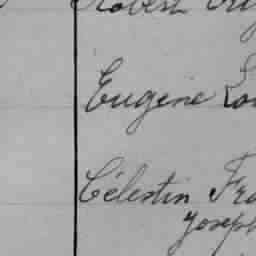 Robert
Eugène
Célestin Fra
Joseph